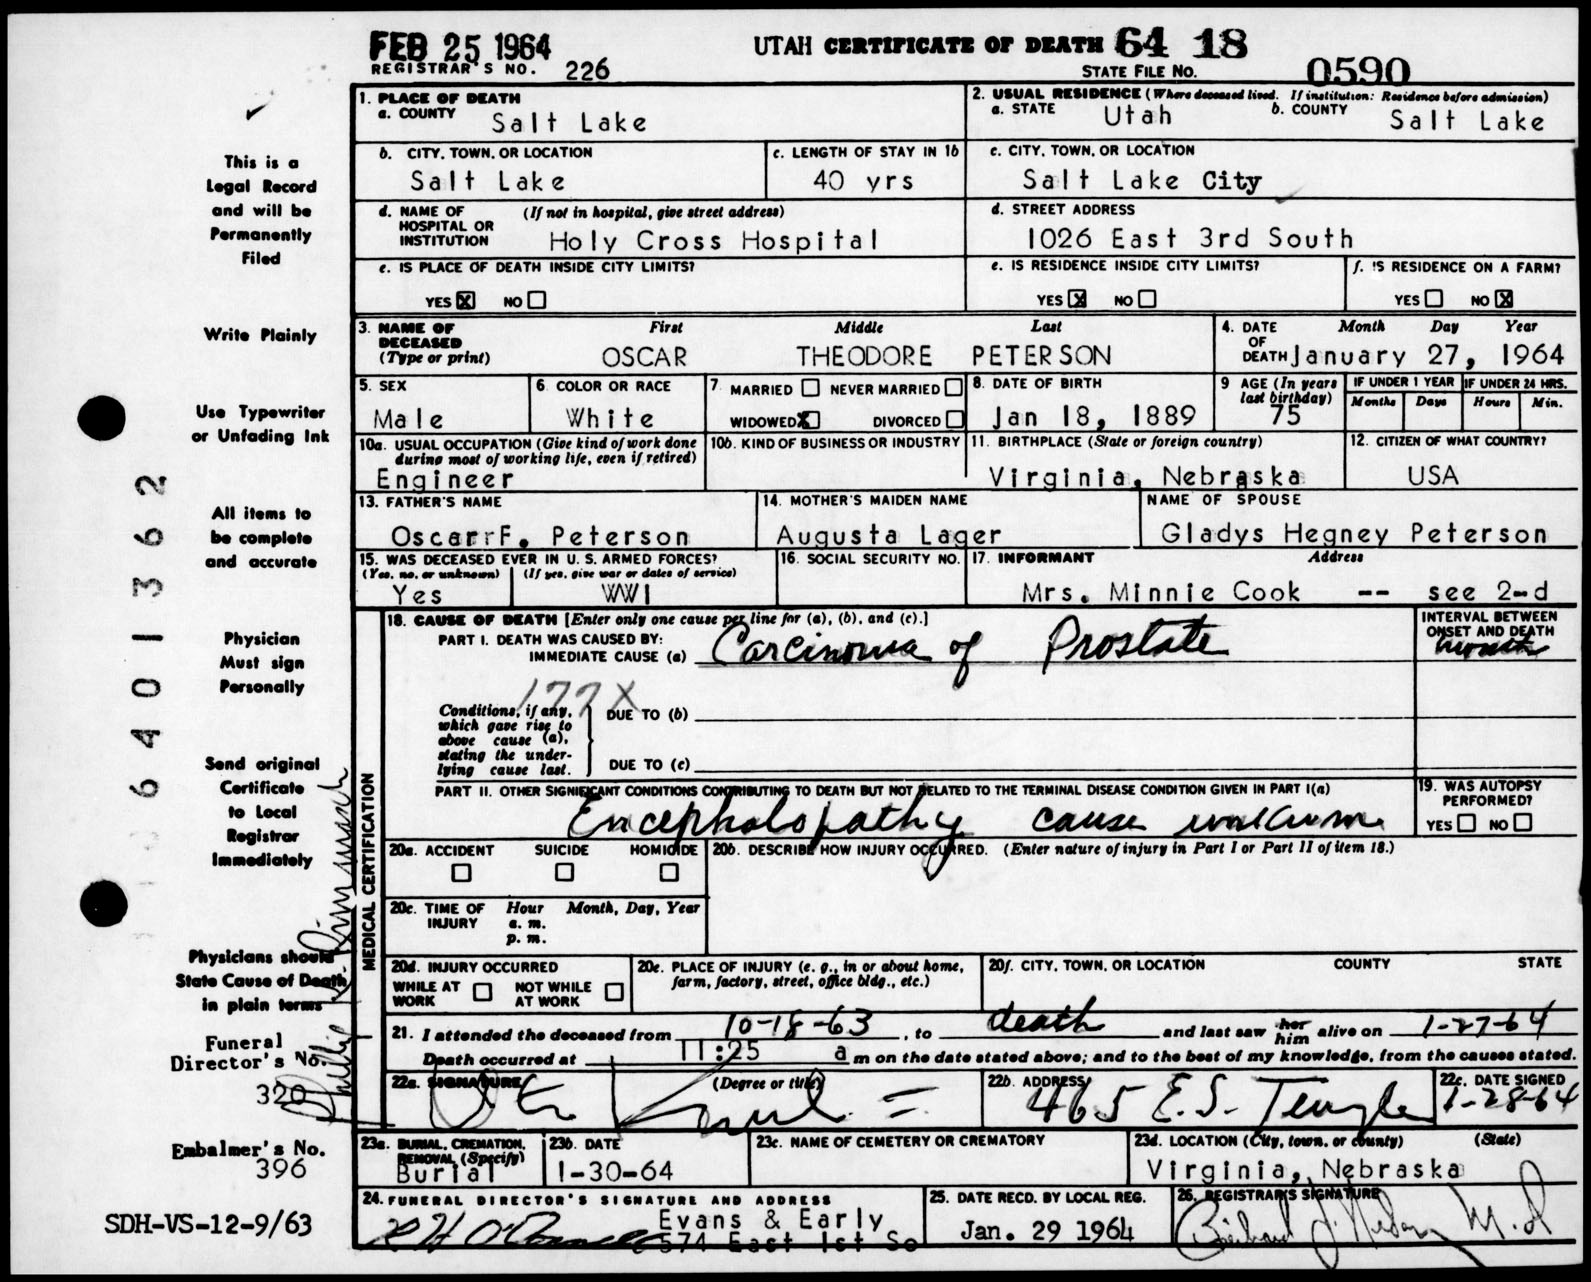 FEB 25 1964 UTAH CERTIFICATE OF DEATH 64 18
REGISTRAR'S NO. 226 STATE FILE NO. 0590
1. PLACE OF DEATH
a. COUNTY Salt Lake
2. USUAL RESIDENCE (Where deceased lived. If institution: Residence before admission)
a. STATE Utah b. COUNTY Salt Lake
b. CITY, TOWN, OR LOCATION Salt Lake
c. LENGTH OF STAY IN 1b 40 yrs
c. CITY, TOWN, OR LOCATION Salt Lake City
d. NAME OF HOSPITAL OR INSTITUTION (If not in hospital, give street address) Holy Cross Hospital
d. STREET ADDRESS 1026 East 3rd South
e. IS PLACE OF DEATH INSIDE CITY LIMITS?
YES X NO
e. IS RESIDENCE INSIDE CITY LIMITS?
YES X NO
f. IS RESIDENCE ON A FARM?
YES NO X
3. NAME OF DECEASED (Type or print) First Middle Last
OSCAR THEODORE PETERSON
4. DATE OF DEATH Month Day Year
January 27, 1964
5. SEX Male
6. COLOR OR RACE White
7 MARRIED NEVER MARRIED
WIDOWED X DIVORCED
8. DATE OF BIRTH Jan 18, 1889
9 AGE (In years last birthday) 75
IF UNDER 1 YEAR Months Days
IF UNDER 24 HRS. Hours Min.
10a. USUAL OCCUPATION (Give kind of work done during most of working life, even if retired)
Engineer
10b. KIND OF BUSINESS OR INDUSTRY
11. BIRTHPLACE (State or foreign country)
Virginia, Nebraska
12. CITIZEN OF WHAT COUNTRY?
USA
13. FATHER'S NAME
OscarrF. Peterson
14. MOTHER'S MAIDEN NAME
Augusta Lager
NAME OF SPOUSE
Gladys Hegney Peterson
15. WAS DECEASED EVER IN U.S. ARMED FORCES?
(Yes, no, or unknown) (If yes, give war or dates of service)
Yes WWI
16. SOCIAL SECURITY NO.
17. INFORMANT Address
Mrs. Minnie Cook -- see 2-d
MEDICAL CERTIFICATION
18. CAUSE OF DEATH [Enter only one cause per line for (a), (b), and (c).]
PART I. DEATH WAS CAUSED BY:
IMMEDIATE CAUSE (a) Carcinoma of Prostate
INTERVAL BETWEEN ONSET AND DEATH
177X
Conditions, if any, which gave rise to above cause (a), stating the underlying cause last.
DUE TO (b)
DUE TO (c)
PART II. OTHER SIGNIFICANT CONDITIONS CONTRIBUTING TO DEATH BUT NOT RELATED TO THE TERMINAL DISEASE CONDITION GIVEN IN PART I(a)
Encephalopathy cause unknown
19. WAS AUTOPSY PERFORMED?
YES NO
20a. ACCIDENT SUICIDE HOMICIDE
20b. DESCRIBE HOW INJURY OCCURRED. (Enter nature of injury in Part I or Part II of item 18.)
20c. TIME OF INJURY Hour Month, Day, Year
a. m.
p. m.
20d. INJURY OCCURRED
WHILE AT WORK NOT WHILE AT WORK
20e. PLACE OF INJURY (e. g., in or about home, farm, factory, street, office bldg., etc.)
20f. CITY, TOWN, OR LOCATION COUNTY STATE
21. I attended the deceased from 10-18-63, to death and last saw her him alive on 1-27-64
Death occurred at 11:25 a m on the date stated above; and to the best of my knowledge, from the causes stated.
22a. SIGNATURE (Degree or title)
22b. ADDRESS 465 E. S. Temple
22c. DATE SIGNED 1-28-64
23a. BURIAL, CREMATION, REMOVAL (Specify)
Burial
23b. DATE
1-30-64
23c. NAME OF CEMETERY OR CREMATORY
23d. LOCATION (City, town, or county) (State)
Virginia, Nebraska
24. FUNERAL DIRECTOR'S SIGNATURE AND ADDRESS
Evans & Early
574 East 1st So
25. DATE RECD. BY LOCAL REG.
Jan. 29 1964
26. REGISTRAR'S SIGNATURE
M.D
This is a
Legal Record
and will be
Permanently
Filed
Write Plainly
Use Typewriter
or Unfading Ink
All items to
be complete
and accurate
Physician
Must sign
Personally
Send original
Certificate
to Local
Registrar
Immediately
Physicians should
State Cause of Death
in plain terms
Funeral
Director's No.
320
Embalmer's No.
396
SDH-VS-12-9/63
6401362